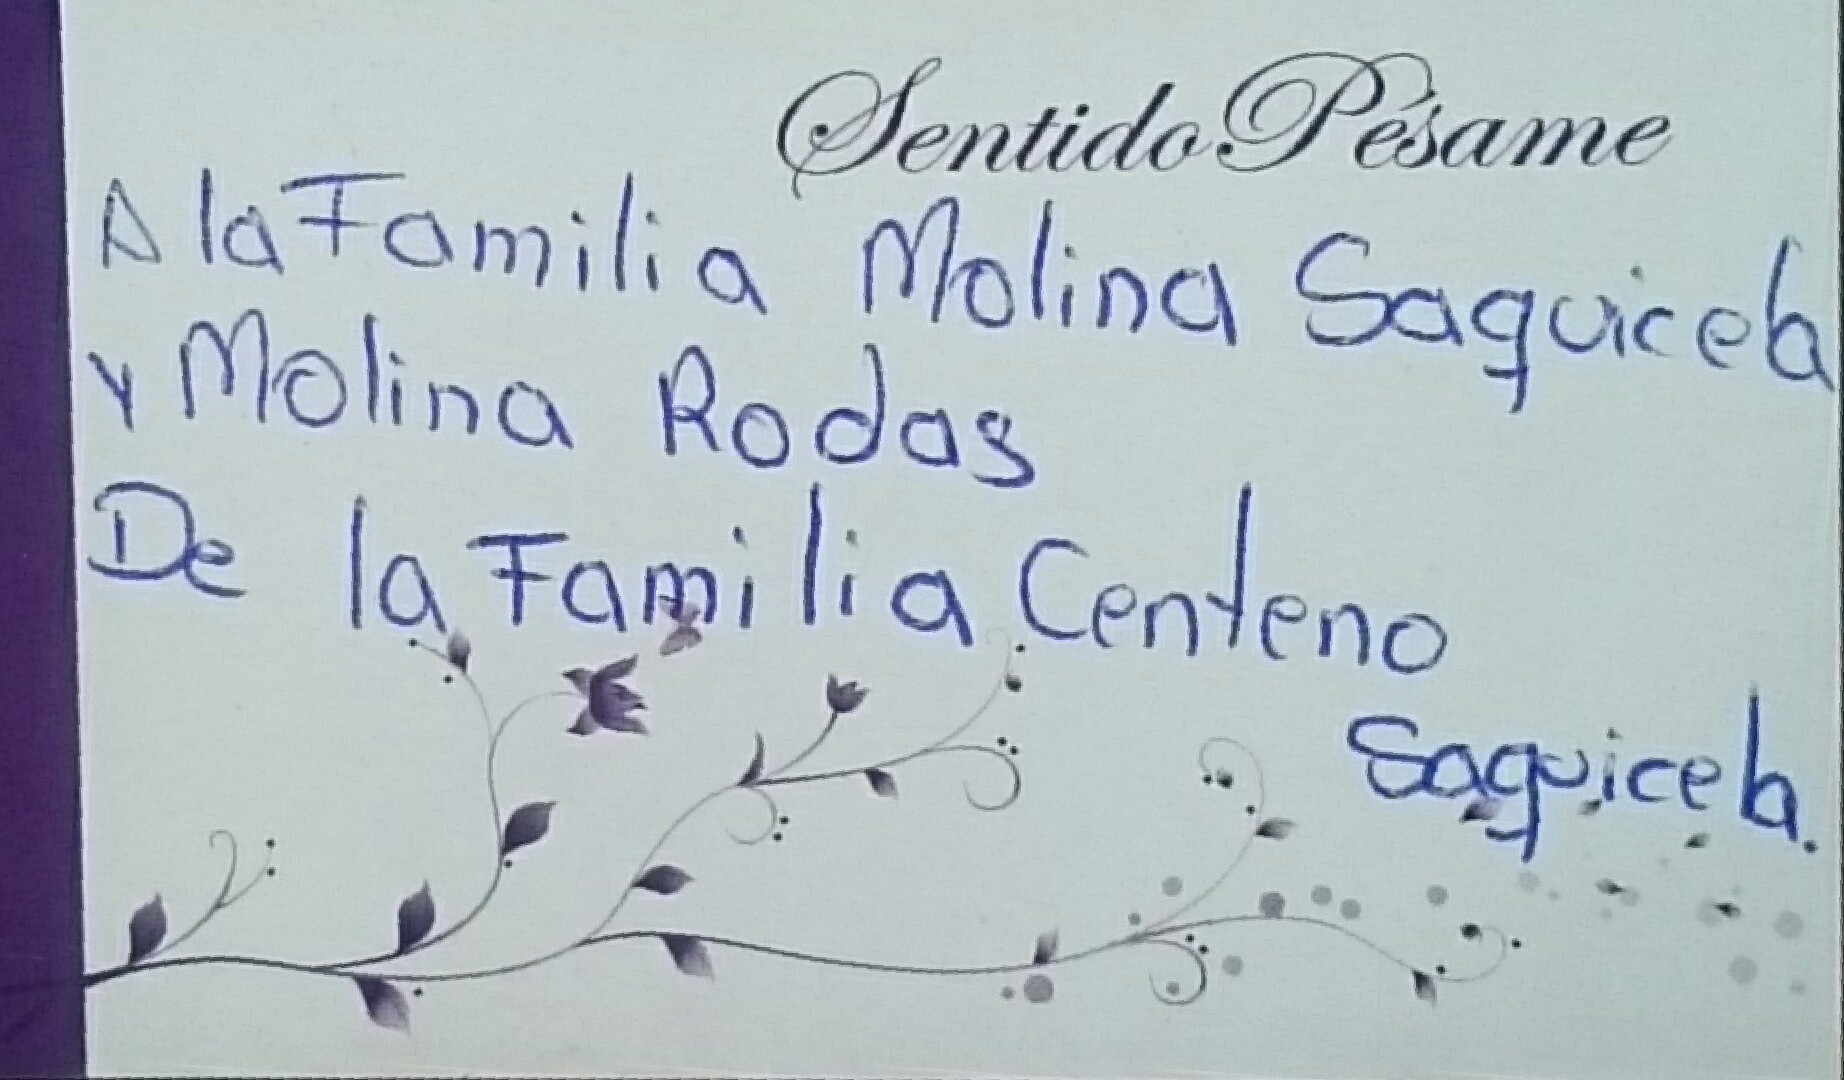 Sentido Pésame
A la Familia Molina Saquicela
y Molina Rodas
De la Familia Centeno
Saquicela.